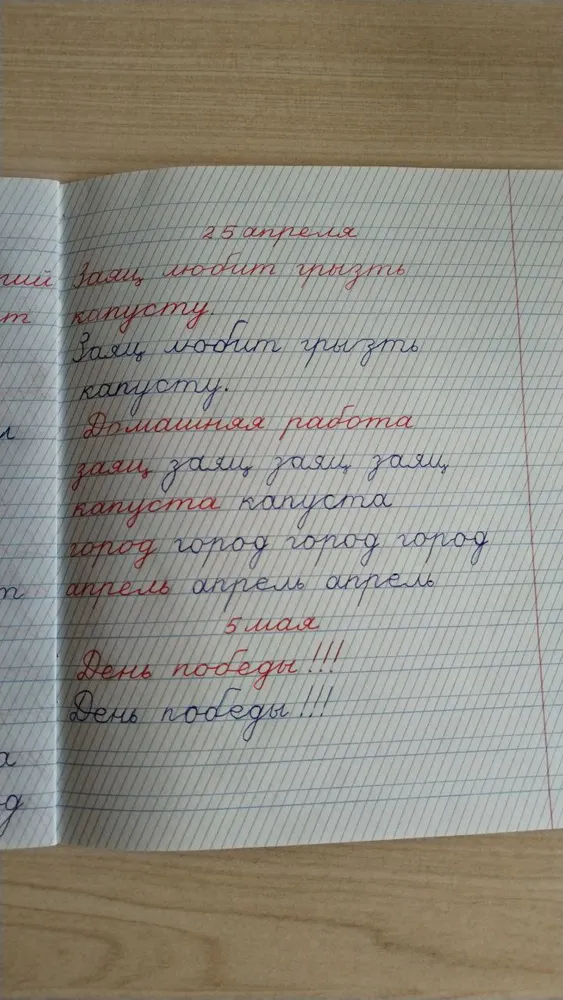 25 апреля
гий Заяц любит грызть
т капусту.
Заяц любит грызть
капусту.
Домашняя работа
заяц заяц заяц заяц
капуста капуста
город город город город
апрель апрель апрель
5 мая
День победы!!!
День победы!!!